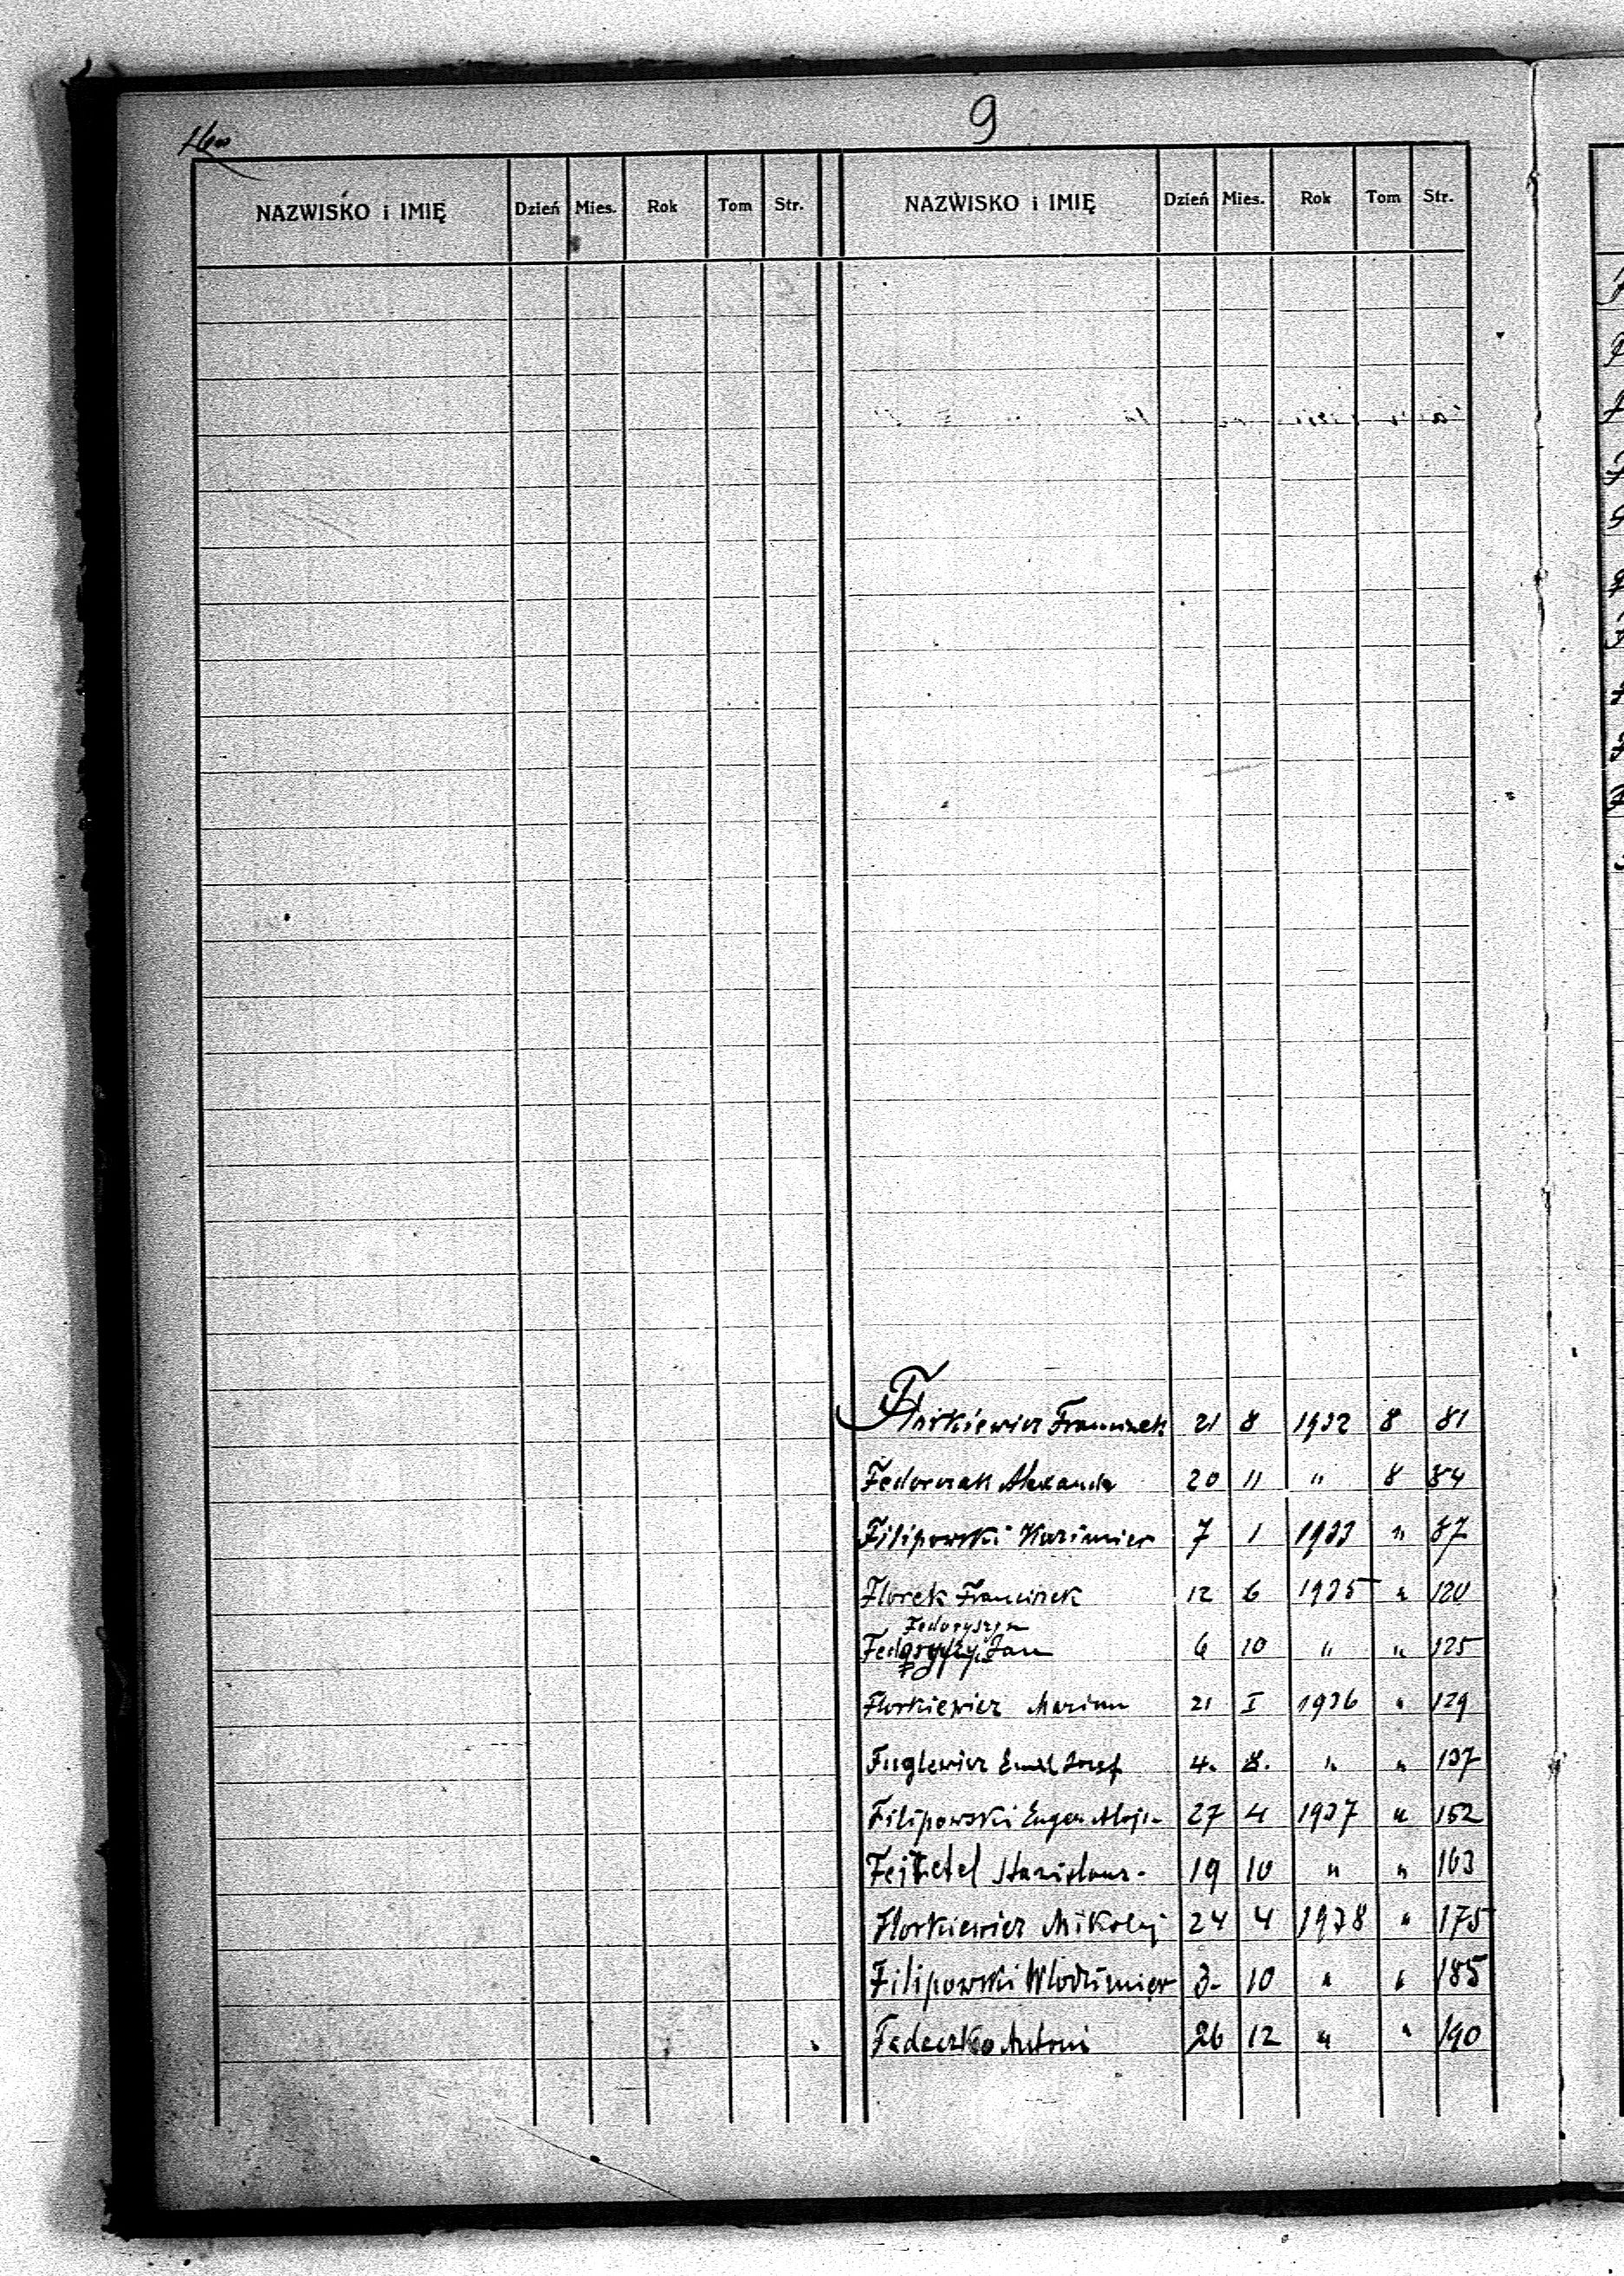 9
NAZWISKO i IMIĘ Dzień Mies. Rok Tom Str. NAZWISKO i IMIĘ Dzień Mies. Rok Tom Str.
Florkiewicz Franciszek 21 8 1932 8 81
Fedorczak Alexander 20 11 " 8 84
Filipowski Kazimierz 7 1 1933 " 87
Florek Franciszek 12 6 1935 " 120
Fedoryszyn
Jan 6 10 " " 125
Florkiewicz Marian 21 I 1936 " 129
Fuglewicz Emil Józef 4. 8. " " 137
Filipowski Eugen Alojz 27 4 1937 " 152
Stanisława - 19 10 " " 163
Florkiewicz Mikołaj 24 4 1938 " 175
Filipowski Włodzimierz 3- 10 " " 185
Fedeczko Antoni 26 12 " " 190